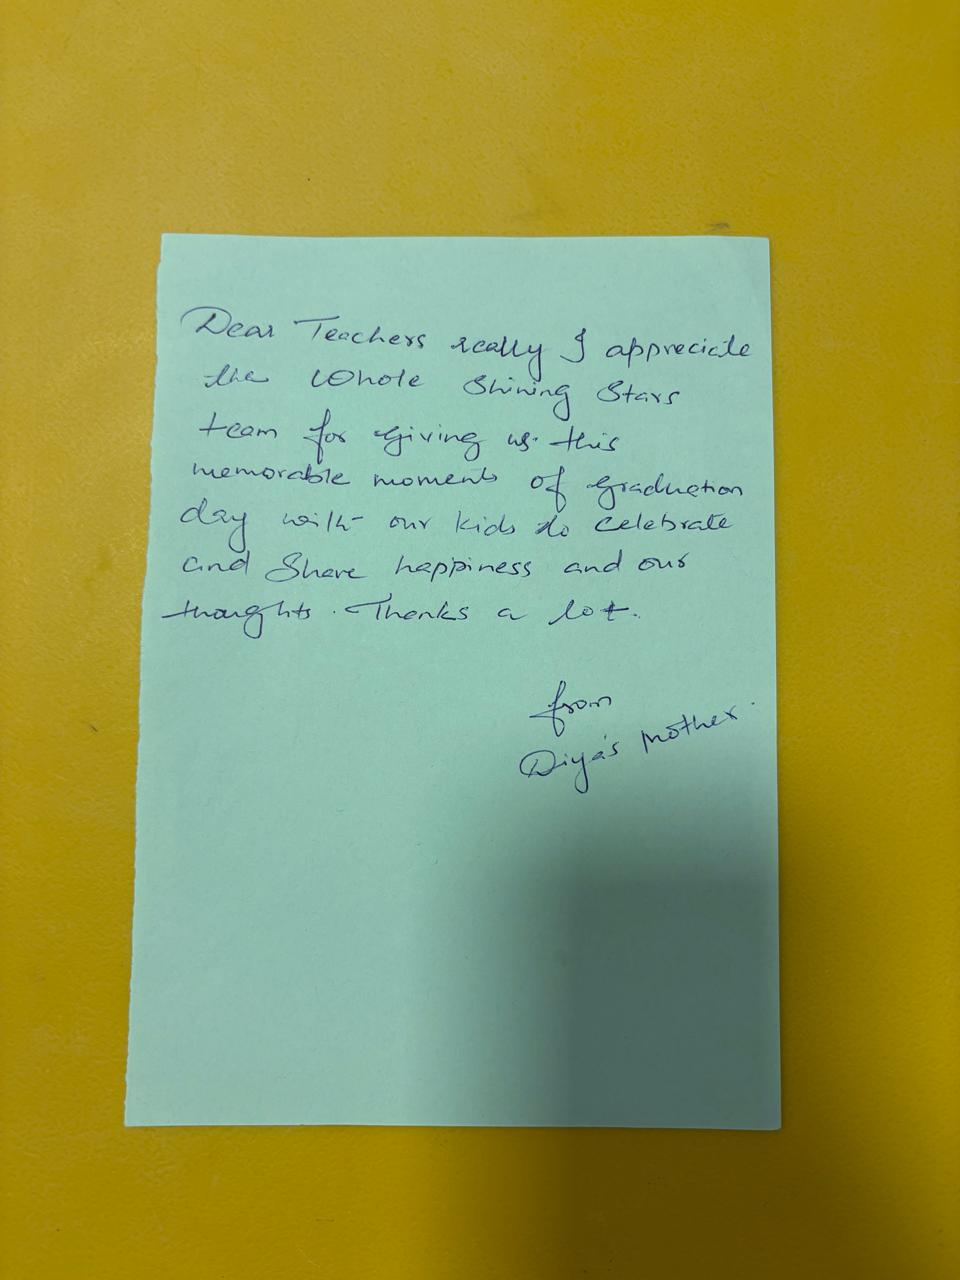 Dear Teachers really I appreciate
the Whole Shining Stars
team for giving us this
memorable moments of graduation
day with our kids to celebrate
and Share happiness and our
thoughts. Thanks a lot.
from
Diya's Mother.